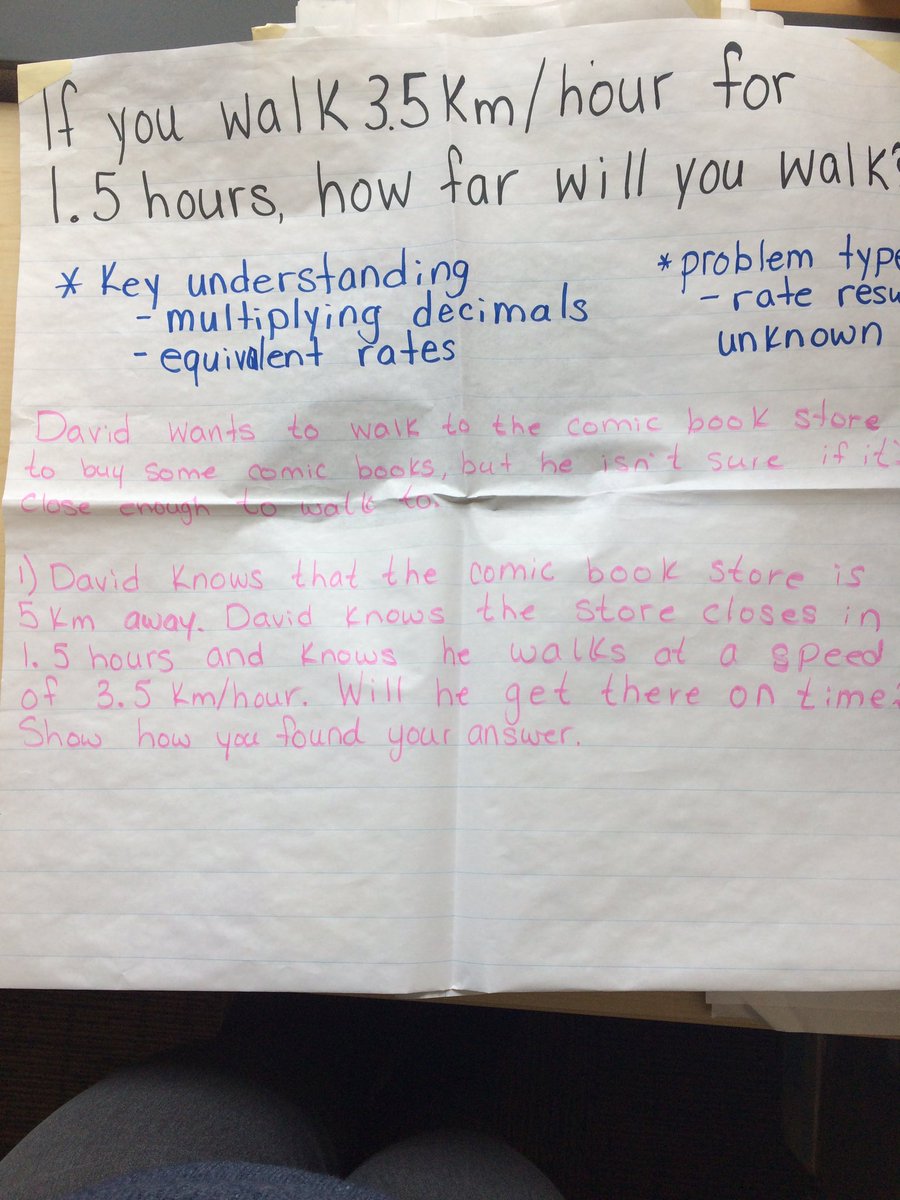 If you walk 3.5 Km/hour for
1.5 hours, how far will you walk?
* Key understanding
- multiplying decimals
- equivalent rates
* problem type
- rate resu
unknown
David wants to walk to the comic book store
to buy some comic books, but he isn't sure if it's
close enough to walk to.
1) David knows that the comic book store is
5 km away. David knows the store closes in
1.5 hours and knows he walks at a speed
of 3.5 km/hour. Will he get there on time?
Show how you found your answer.